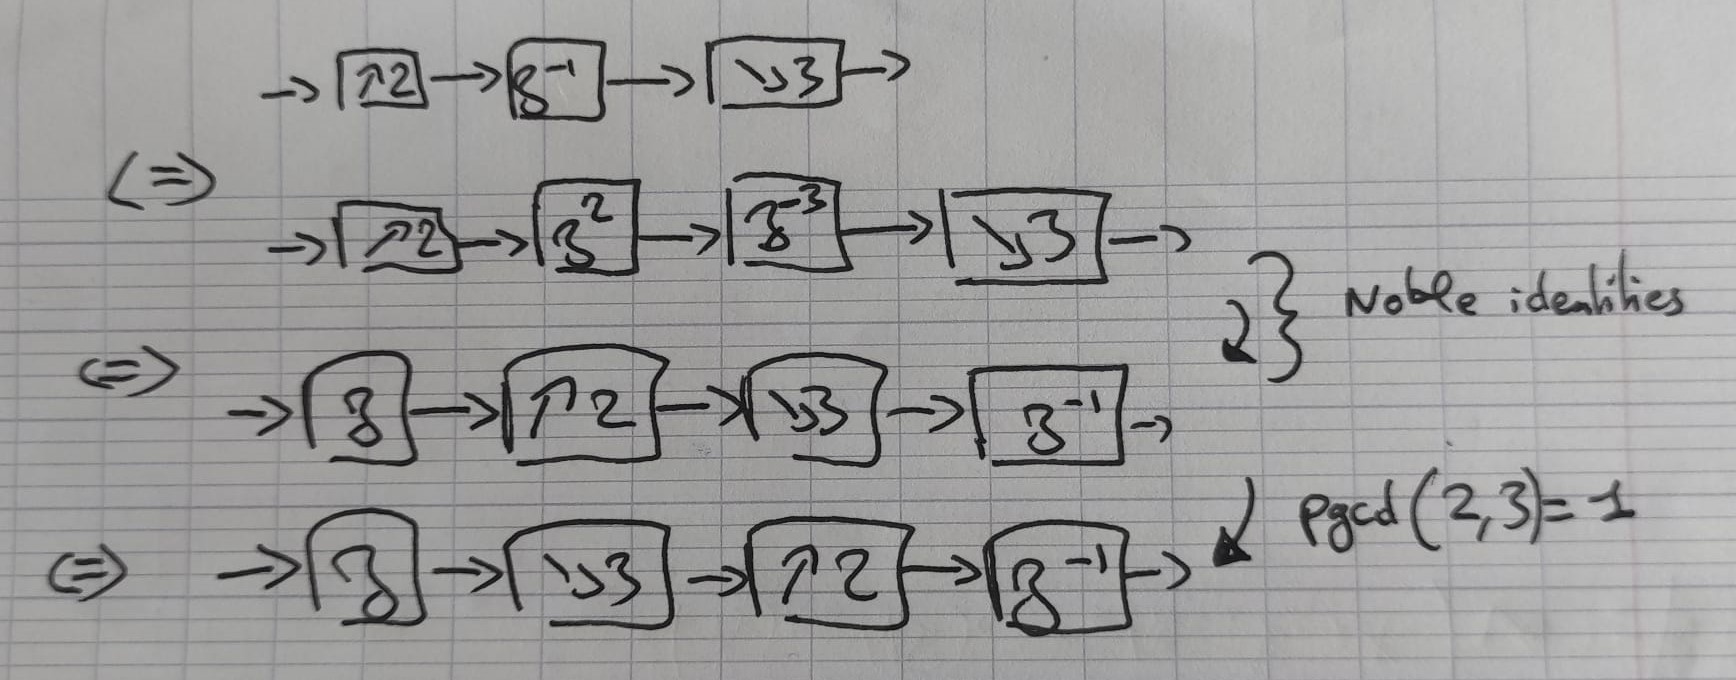 → ↑2 → z⁻¹ → ↓3 →
(=)
→ ↑2 → z² → z⁻³ → ↓3 →
} Noble identities
(=) → z → ↑2 → ↓3 → z⁻¹ →
pgcd(2,3)=1
(=) → z → ↓3 → ↑2 → z⁻¹ →